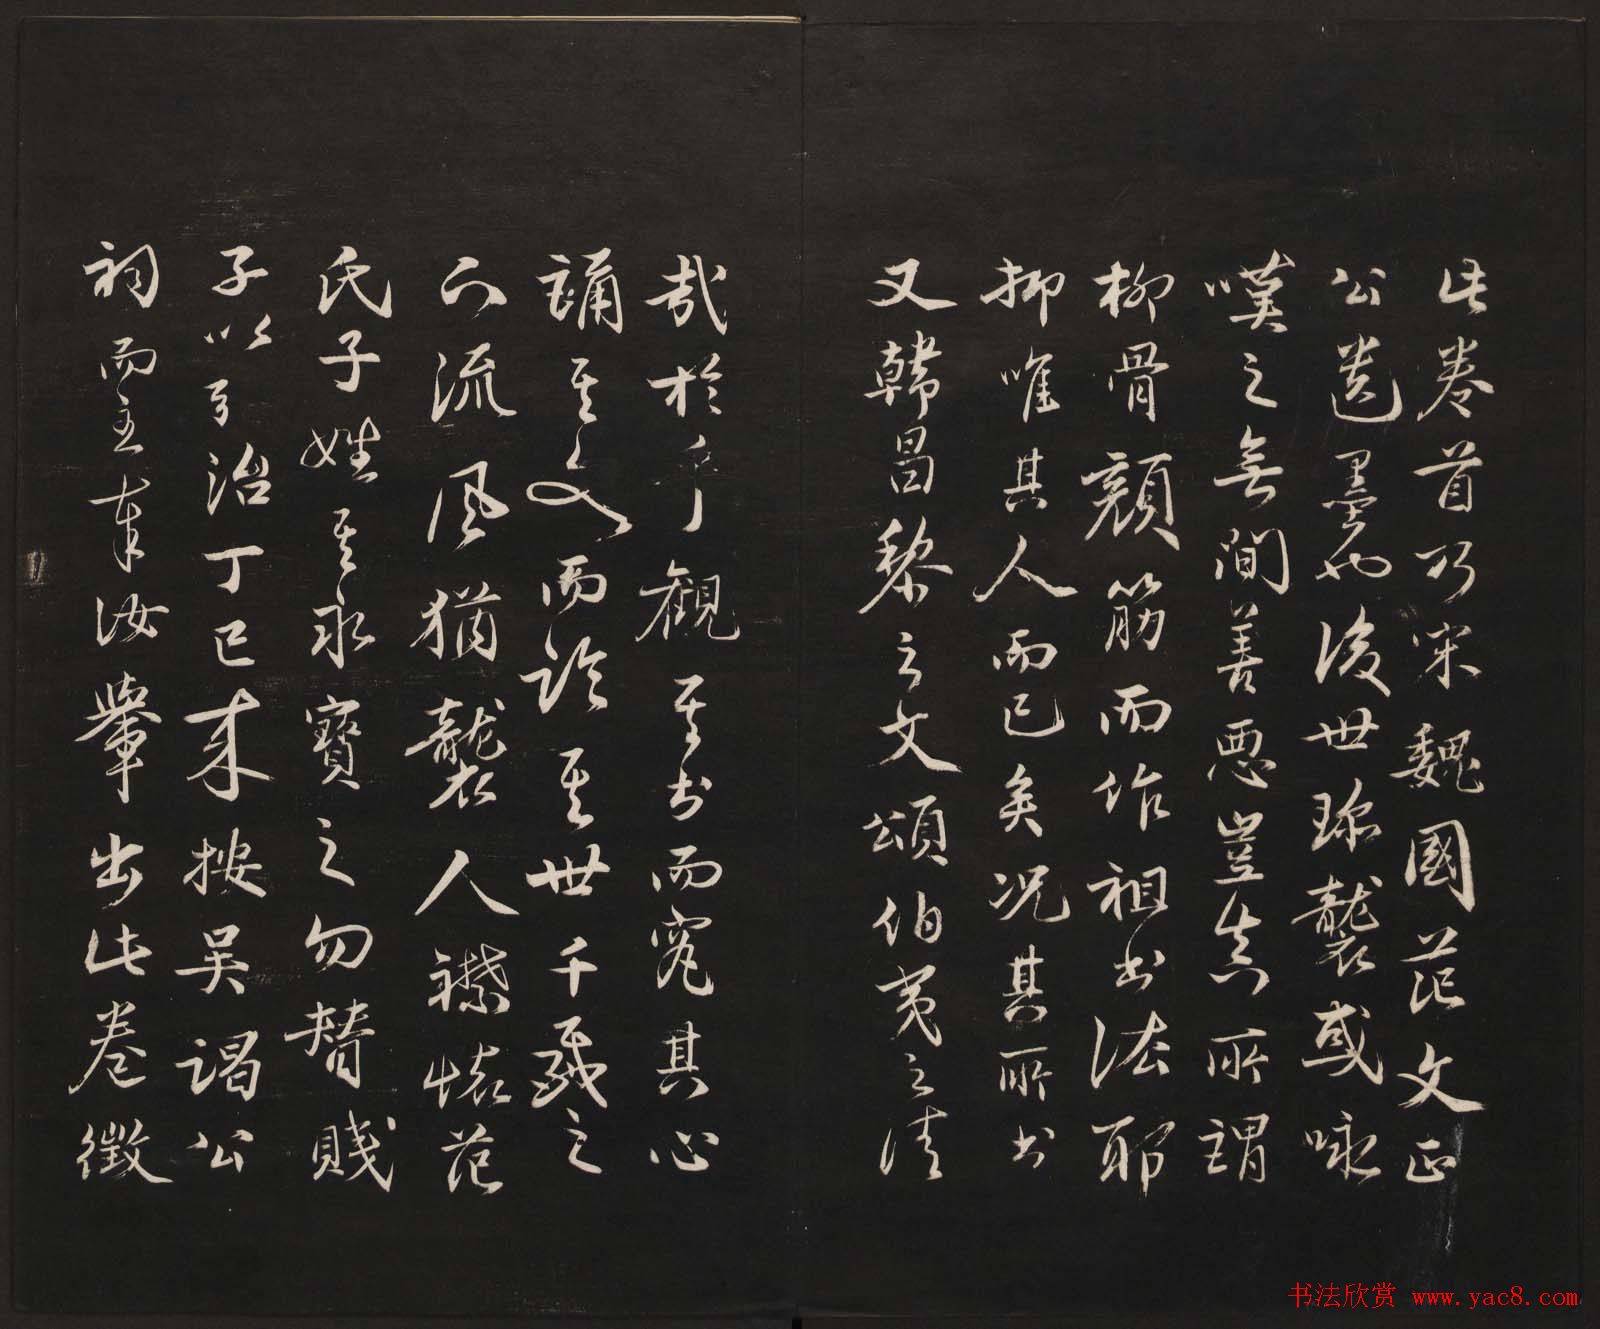 此卷首乃宋魏國范文正
公遺墨也後世珍襲或詠
嘆之無間善惡豈真所謂
柳骨顏筋而作祖書法耶
抑唯其人而已矣況其所書
又韓昌黎之文頌伯夷之清
哉於乎觀其書而究其心
誦其文而論其世千載之
下流風猶襲人襟懷范
氏子姓其永寶之勿替賤
子以弘治丁巳來按吳謁公
祠而主奉汝輦出此卷徵
书法欣赏 www.yac8.com